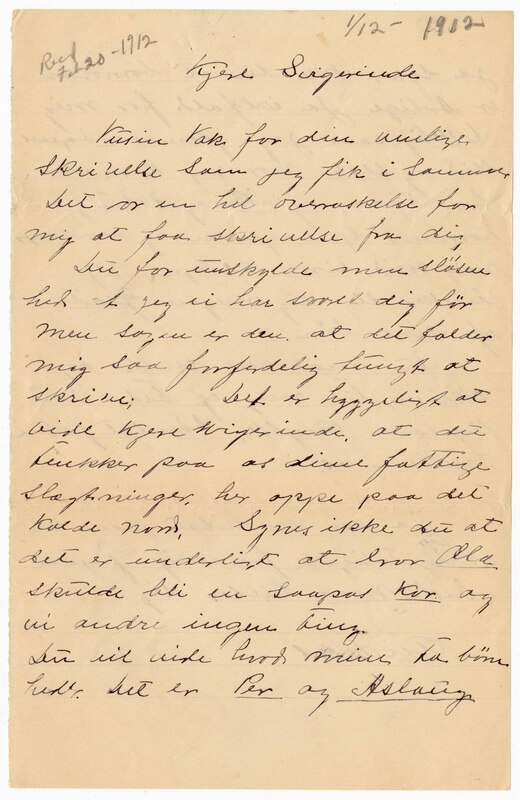 1/12- 1912
Recd
Feb 20-1912
Kjere Svigerinde
Tusin Tak for din venlige
skrivelse som jeg fik i Sommer
Det var en hel overraskelse for
mig at faa skrivelse fra dig,
Du for unskylde min sløsen
hed t jeg ei har svoret dig før
men sagen er den. at det falder
mig saa forferdelig tungt at
skrive; Det er hyggeligt at
vide kjere svigerinde, at du
tenkker paa os dine fattige
Slægtninger, her oppe paa det
kolde nord. Synes ikke du at
det er underligt at bror Ola
skulde bli en saapas Kar og
vi andre ingen ting.
Du vil vide hvad mine to børn
heder. Det er Per og Aslaug